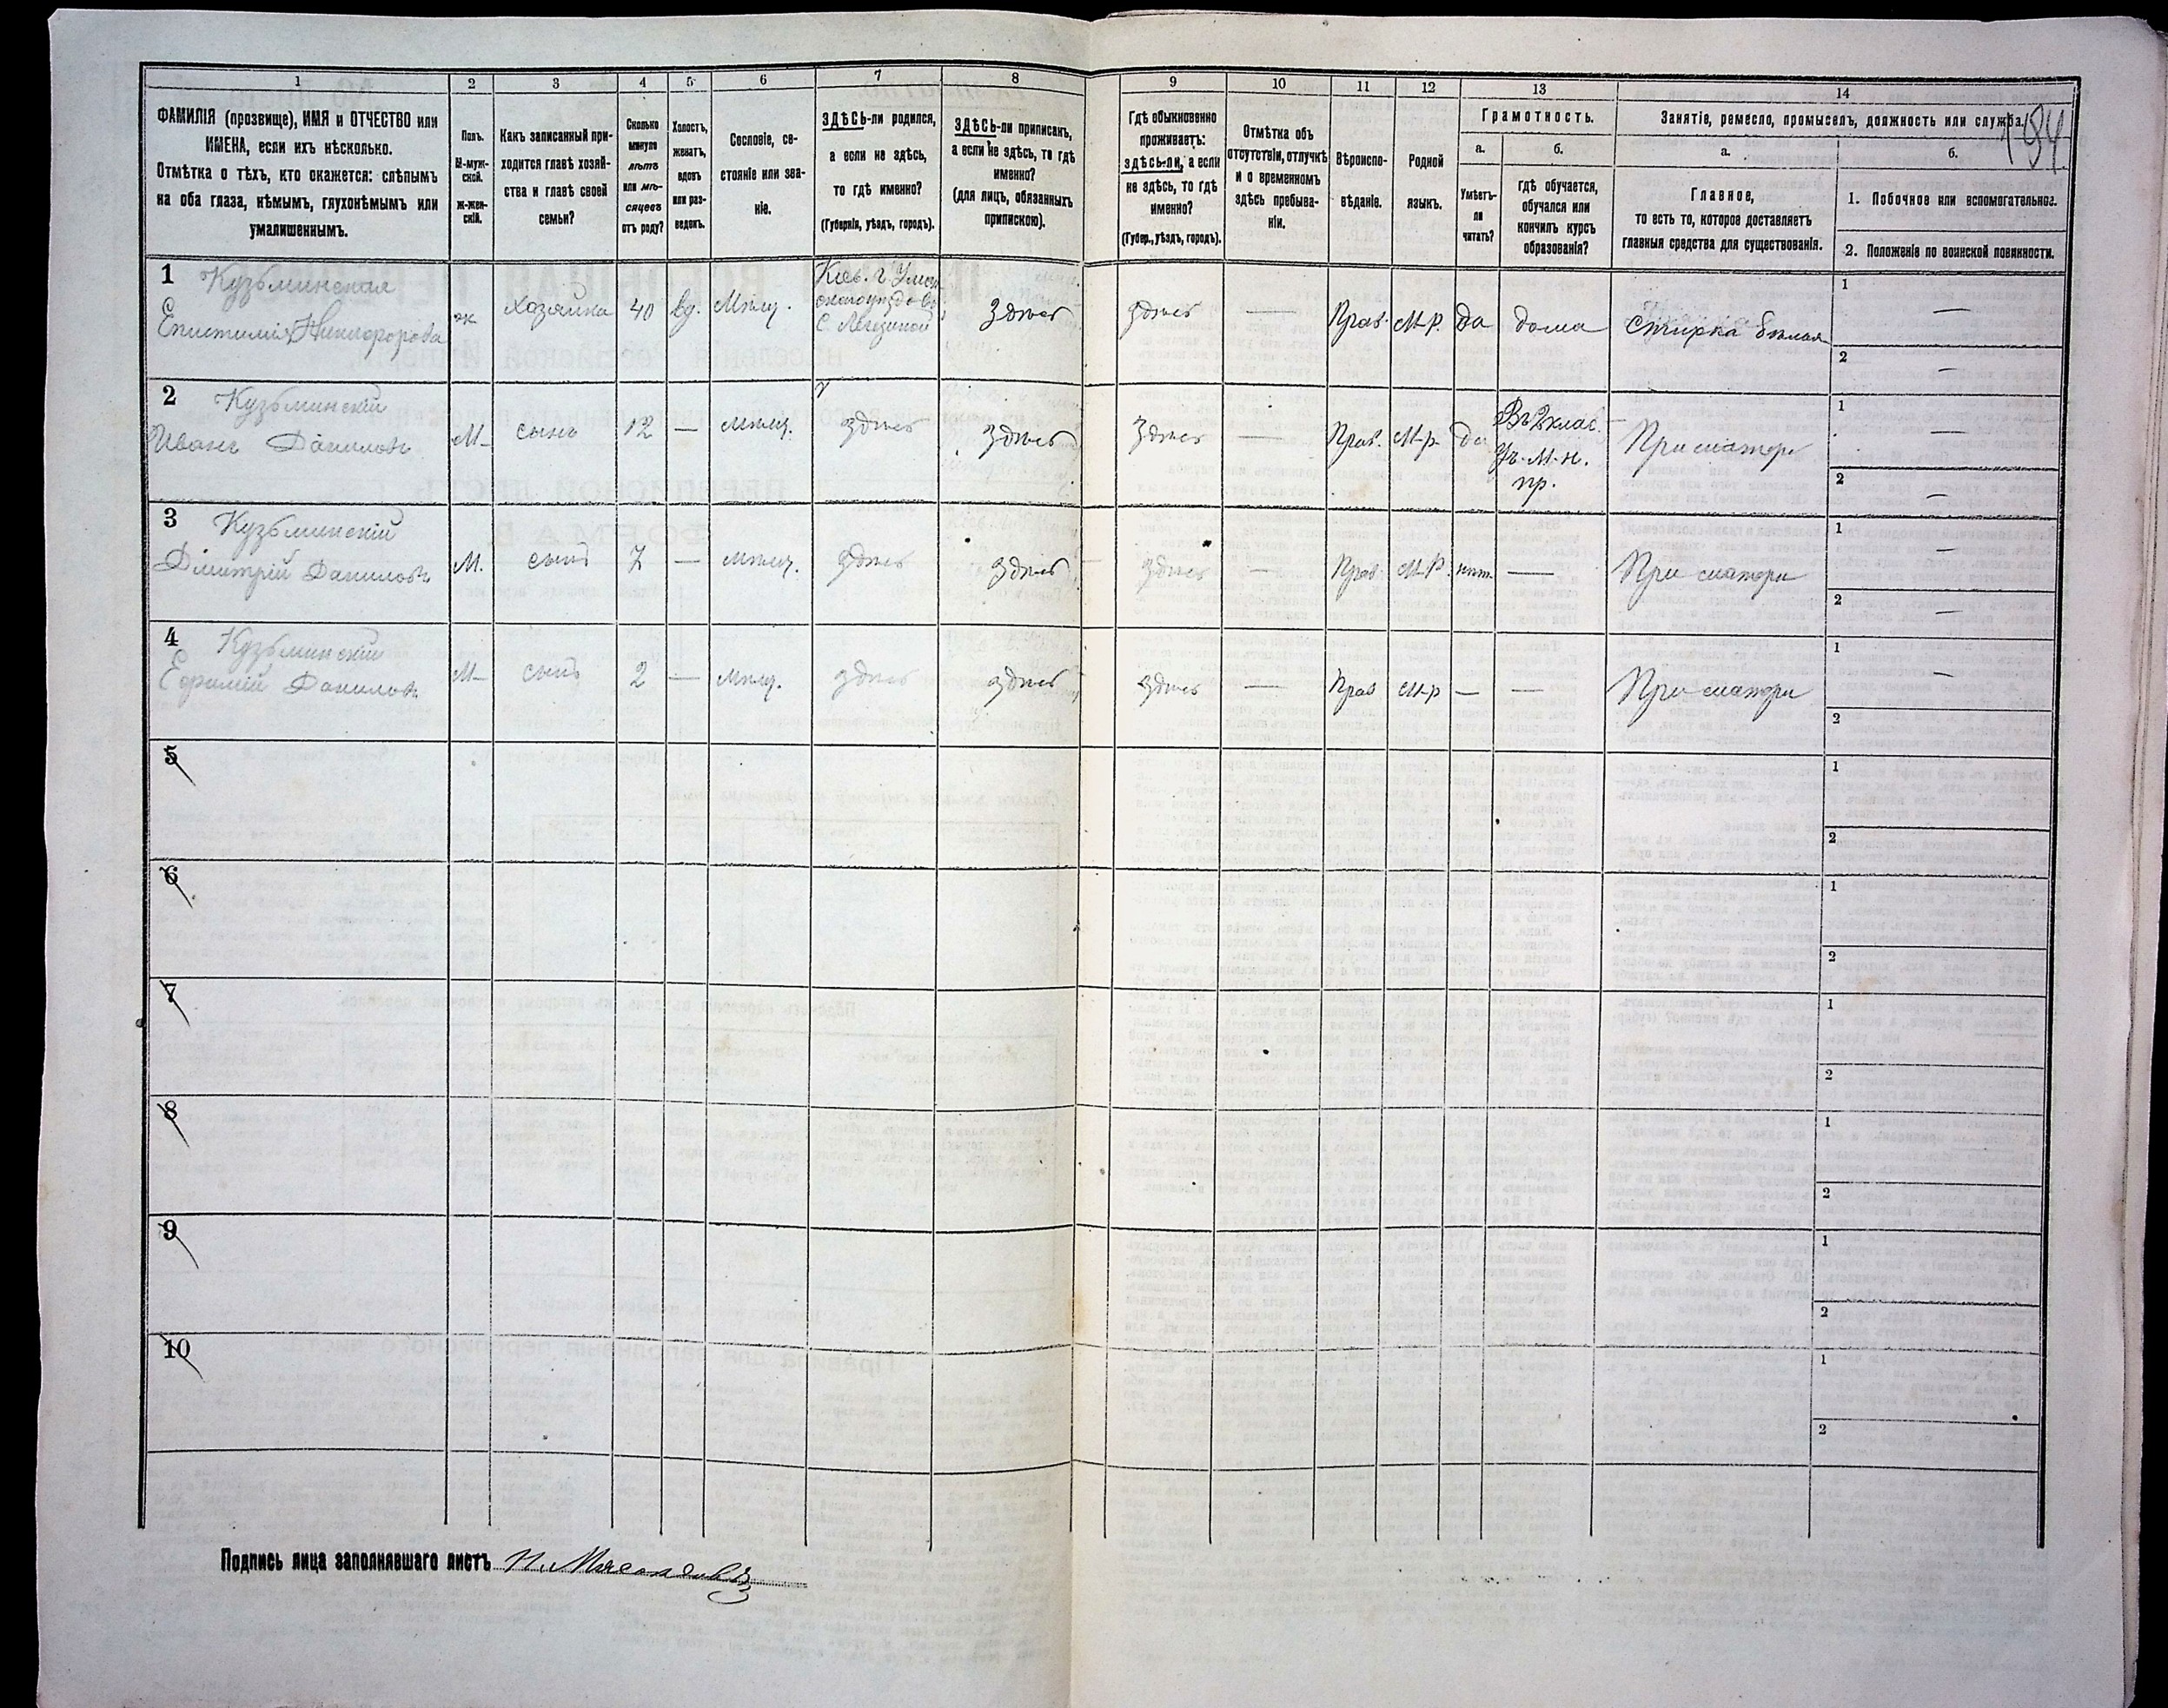 1 2 3 4 5 6 7 8 9 10 11 12 13 14
194
ФАМИЛІЯ (прозвище), ИМЯ и ОТЧЕСТВО или
ИМЕНА, если ихъ нѣсколько.
Отмѣтка о тѣхъ, кто окажется: слѣпымъ
на оба глаза, нѣмымъ, глухонѣмымъ или
умалишеннымъ.
Полъ.
М-муж-
ской.
ж-жен-
скій.
Какъ записанный при-
ходится главѣ хозяй-
ства и главѣ своей
семьи?
Сколько
минуло
лѣтъ
или мѣ-
сяцевъ
отъ роду?
Холостъ,
женатъ,
вдовъ
или раз-
веденъ.
Сословіе, со-
стояніе или зва-
ніе.
ЗДѢСЬ-ли родился,
а если не здѣсь,
то гдѣ именно?
(Губернія, уѣздъ, городъ).
ЗДѢСЬ-ли приписанъ,
а если не здѣсь, то гдѣ
именно?
(для лицъ, обязанныхъ
припискою).
Гдѣ обыкновенно
проживаетъ:
здѣсь-ли, а если
не здѣсь, то гдѣ
именно?
(Губер., уѣздъ, городъ).
Отмѣтка объ
отсутствіи, отлучкѣ
и о временномъ
здѣсь пребыва-
ніи.
Вѣроиспо-
вѣданіе.
Родной
языкъ.
Грамотность.
а. б.
Умѣетъ-
ли
читать?
гдѣ обучается,
обучался или
кончилъ курсъ
образованія?
Занятіе, ремесло, промыселъ, должность или служба.
а. б.
Главное,
то есть то, которое доставляетъ
главныя средства для существованія.
1. Побочное или вспомогательное.
2. Положеніе по воинской повинности.
1 Кузьминская
Епистимія Никифорова ж хозяйка 40 вд. Мѣщ. Кіев. г. Уман здѣсь здѣсь — Прав. М-р. да дома Стирка бѣлья 1 —
2 —
2 Кузьминскій
Иванъ Даниловъ М- сынъ 12 — мѣщ. здѣсь здѣсь здѣсь — Прав. М-р. да Въ 2 клас. При матери 1 —
Уч. М. н.
пр.
2 —
3 Кузьминскій
Димитрій Даниловъ М. сынъ 7 — мѣщ. здѣсь здѣсь здѣсь — Прав. М-р. нѣт. — При матери 1 —
2 —
4 Кузьминскій
Ефимій Даниловъ М- сынъ 2 — мѣщ. здѣсь здѣсь здѣсь — Прав М-р — — При матери 1 —
2
5 1
2
6 1
2
7 1
2
8 1
2
9 1
2
10 1
2
Подпись лица заполнявшаго листъ